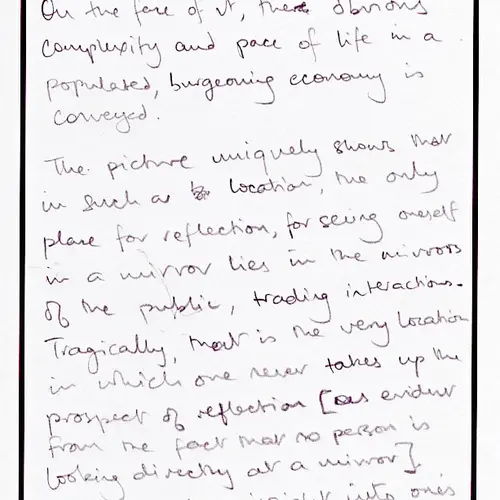 On the face of it, the obvious
complexity and pace of life in a
populated, burgeoning economy is
conveyed.
The picture uniquely shows that
in such a location, the only
place for reflection, for seeing oneself
in a mirror lies in the mirrors
of the public, trading interactions.
Tragically, that is the very location
in which one never takes up the
prospect of reflection [as evident
from the fact that no person is
looking directly at a mirror]
insight into one's